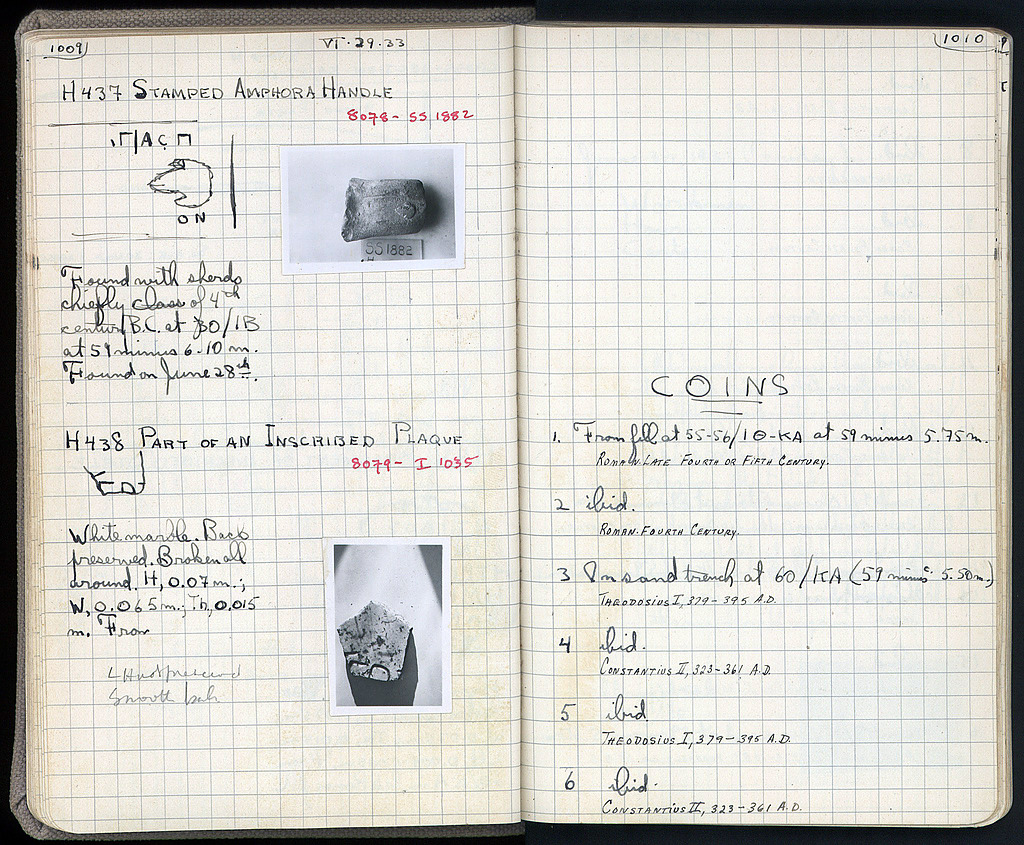 1009
VI·29·33
H437 STAMPED AMPHORA HANDLE
8078- SS 1882
ON
SS1882
Found with sherds
chiefly class of 4th
century B.C. at 30/IB
at 59 minus 6.10 m.
Found on June 28th.
H438 PART OF AN INSCRIBED PLAQUE
8079- I 1035
White marble. Back
preserved. Broken all
around. H, 0.07 m.;
W, 0.065 m.; Th, 0.015
m. From
Smooth
1010
COINS
1. From fill at 55-56/10-KA at 59 minus 5.75 m.
ROMAN-LATE FOURTH OR FIFTH CENTURY.
2 ibid.
ROMAN-FOURTH CENTURY.
3 In sand trench at 60/KA (59 minus 5.50m.)
THEODOSIUS I, 379-395 A.D.
4 ibid.
CONSTANTIUS II, 323-361 A.D.
5 ibid
THEODOSIUS I, 379-395 A.D.
6 ibid.
CONSTANTIUS II, 323-361 A.D.